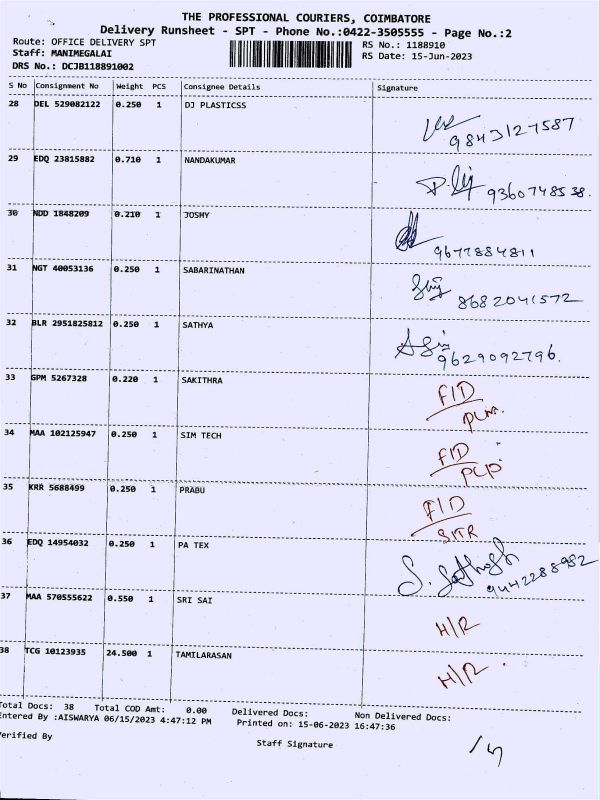 THE PROFESSIONAL COURIERS, COIMBATORE
Delivery Runsheet - SPT - Phone No.:0422-3505555 - Page No.:2
Route: OFFICE DELIVERY SPT
Staff: MANIMEGALAI
DRS No.: DCJB118891002
RS No.: 1188910
RS Date: 15-Jun-2023
S No Consignment No Weight PCS Consignee Details Signature
28 DEL 529082122 0.250 1 DJ PLASTICSS
9843127587
29 EDQ 23815882 0.710 1 NANDAKUMAR
9360748538.
30 NDD 1848209 0.210 1 JOSHY
9677884811
31 NGT 40053136 0.250 1 SABARINATHAN
8682041572
32 BLR 2951825812 0.250 1 SATHYA
9629092796.
33 GPM 5267328 0.220 1 SAKITHRA
F/D
34 MAA 102125947 0.250 1 SIM TECH
F/D
35 KRR 5688499 0.250 1 PRABU
F/D
36 EDQ 14954032 0.250 1 PA TEX
9442288982
37 MAA 570555622 0.550 1 SRI SAI
H/R
38 TCG 10123935 24.500 1 TAMILARASAN
H/R
Total Docs: 38 Total COD Amt: 0.00 Delivered Docs: Non Delivered Docs:
Entered By :AISWARYA 06/15/2023 4:47:12 PM Printed on: 15-06-2023 16:47:36
Verified By
Staff Signature